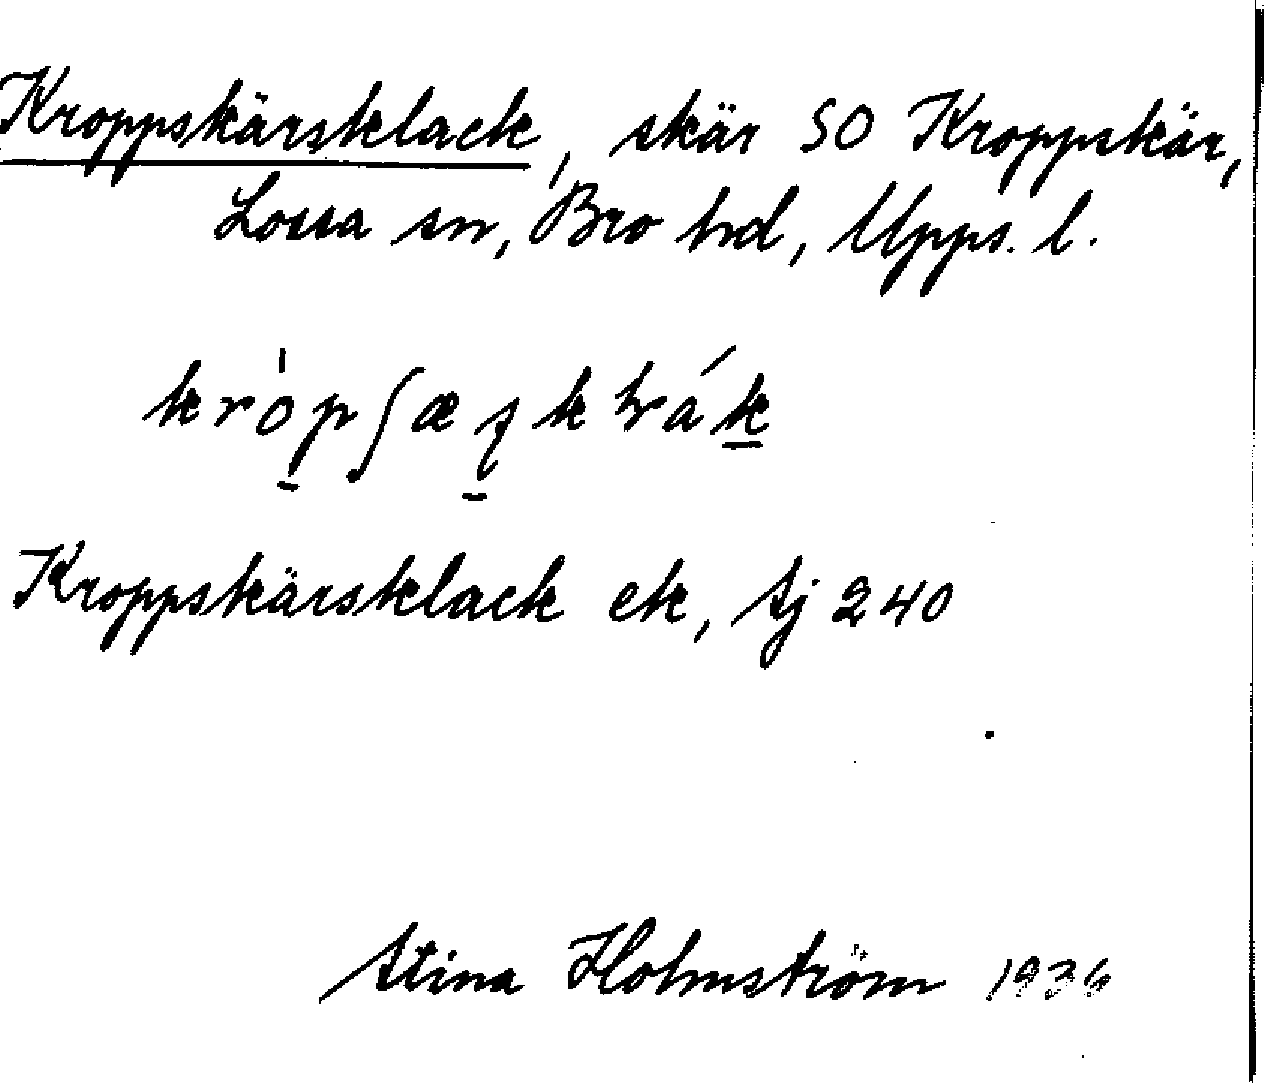 Kroppskärsklack, skär SO Kroppskär,
Lossa sn, Bro hd, Upps. l.
Kroppskärsklack ek, sj 240
Stina Holmström 1936